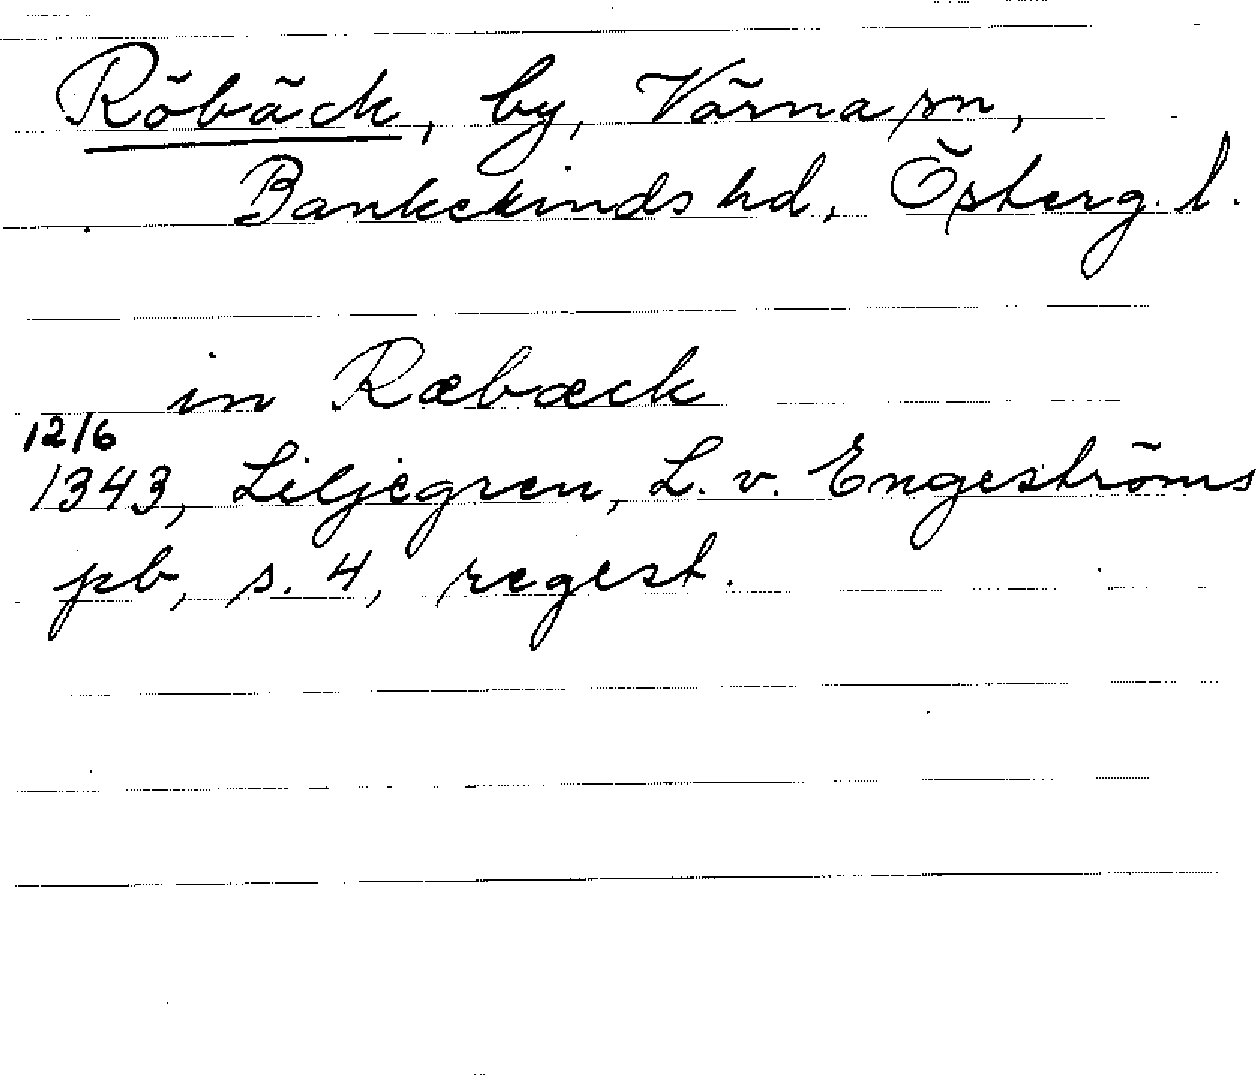 Röbäck, by, Värna sn,
Bankekinds hd, Österg. l.
in Ræbæck
12/6
1343, Liljegren, L. v. Engeströms
pb, s. 4, regest.